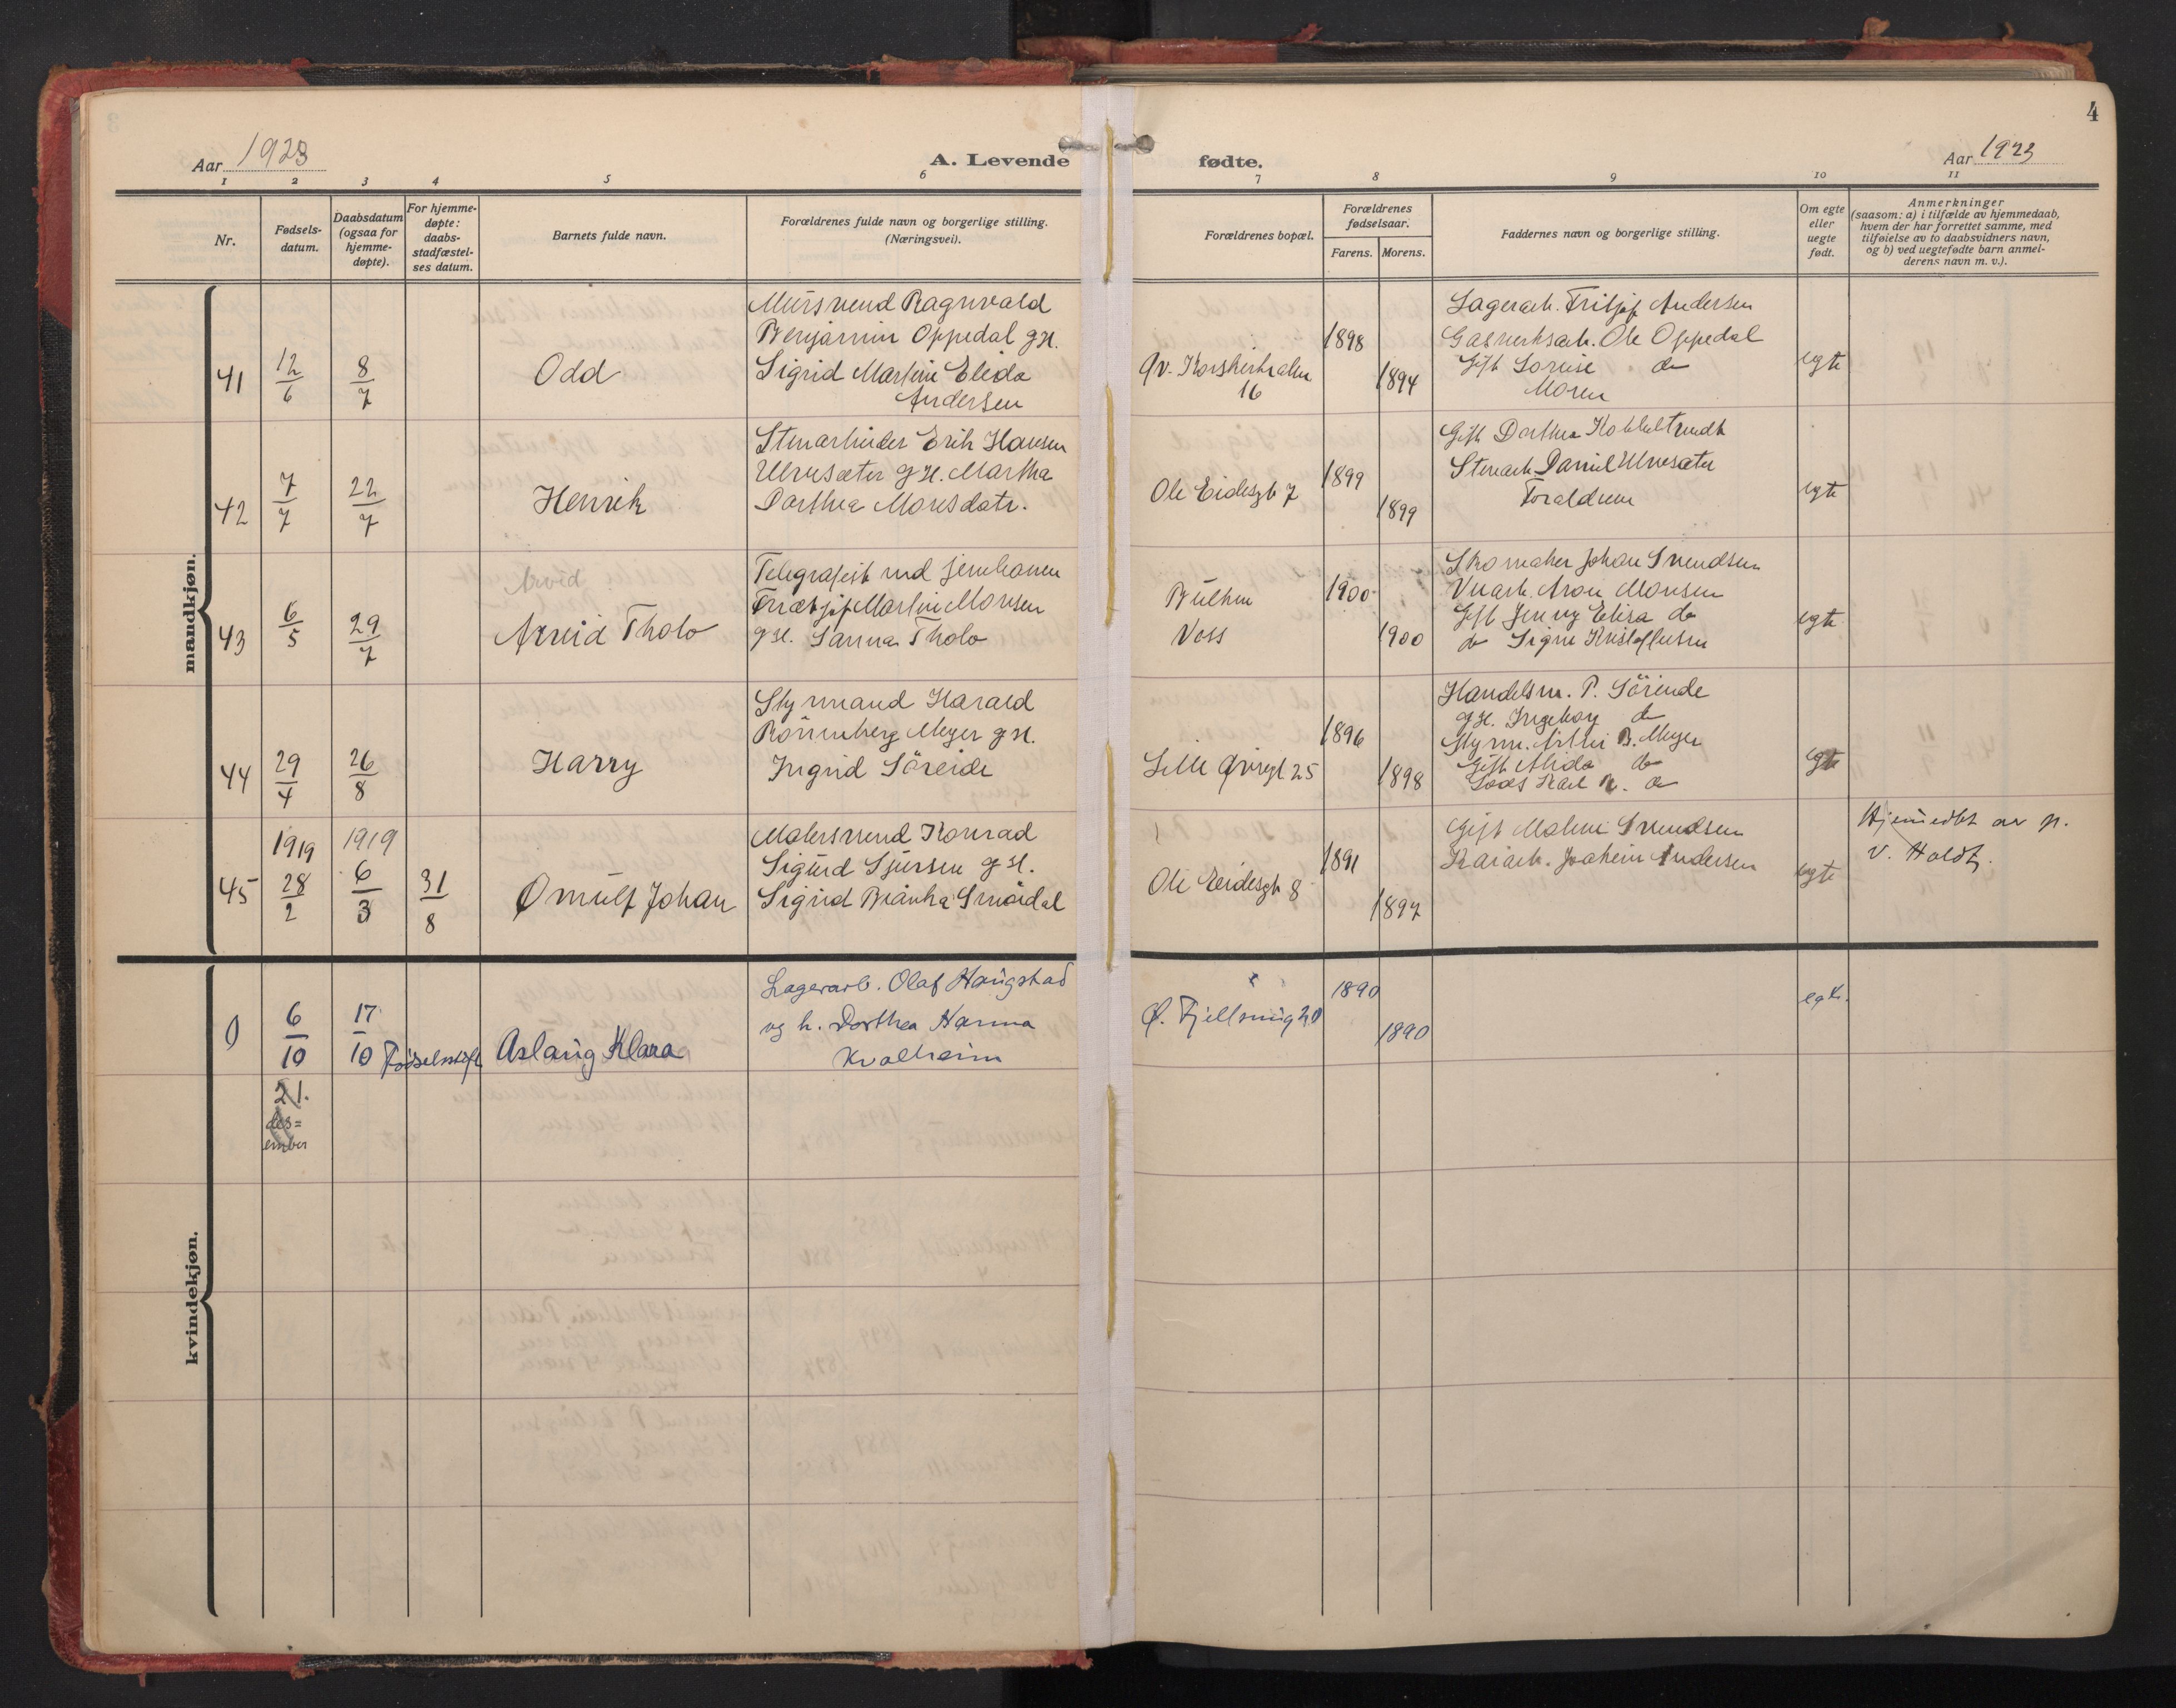 4
Aar 1923
A. Levende fødte.
Aar 1923
1 2 3 4 5 6 7 8 9 10 11
Nr.
Fødsels-
datum.
Daabsdatum
(ogsaa for
hjemme-
døpte).
For hjemme-
døpte:
daabs-
stadfæstel-
ses datum.
Barnets fulde navn.
Forældrenes fulde navn og borgerlige stilling.
(Næringsvei).
Forældrenes bopæl.
Forældrenes
fødselsaar.
Farens. Morens.
Faddernes navn og borgerlige stilling.
Om egte
eller
uegte
født.
Anmerkninger
(saasom: a) i tilfælde av hjemmedaab,
hvem der har forrettet samme, med
tilføielse av to daabsvidners navn,
og b) ved uegtefødte barn anmel-
derens navn m. v.).
mandkjøn.
41
12/6
8/7
Odd
Mursvend Ragnvald
Benjamin Oppedal g H.
Sigrid Martine Elida
Andersen
16
1898
1894
Lagerarb. Fritjof Andersen
Gasverksarb. Ole Oppedal
Gift Lovise do
Moren
egte
42
7/7
22/7
Henrik
Stenarbeider Erik Hansen
Ulvesæter g H. Martha
Dorthea Monsdatr.
Ole Eidesgt 7
1899
1899
Gift Dorthea
Stenarb. Daniel Ulvesæter
Forældrene
egte
43
6/5
29/7
Arvid
Arvid Tholo
Telegrafist ved jernbanen
Martin Monsen
g H. Sanna Tholo
Voss
1900
1900
Skomaker Johan Svendsen
Aron Monsen
Gift Jenny Elisa do
do Signe Kristoffersen
egte
44
29/4
26/8
Harry
Styrmand Harald
Rönnenberg Meyer g H.
Ingrid Söreide
Lille 25
1896
1898
Handelsm. P. Söreide
g H. Ingeborg do
Styrm. B. Meyer
Gift Alida do
Karl R. do
egte
45
1919
28/2
1919
6/3
31/8
Ørnulf Johan
Malersvend Konrad
Sigurd Sjursen g H.
Sigrid Bianka Smördal
Ole Eidesgt 8
1891
1897
Gift Malene Svendsen
Kaiarb. Joakim Andersen
egte
Hjemedbt av p.
V. Holdt.
kvindekjøn.
0
6/10
17/10
Födselsstift
Aslaug Klara
Lagerarb. Olaf Haugstad
og h. Dorthea Hanna
Kvalheim
Ø. Fjellsmug 20
1890
1890
egte.
21.
des=
ember